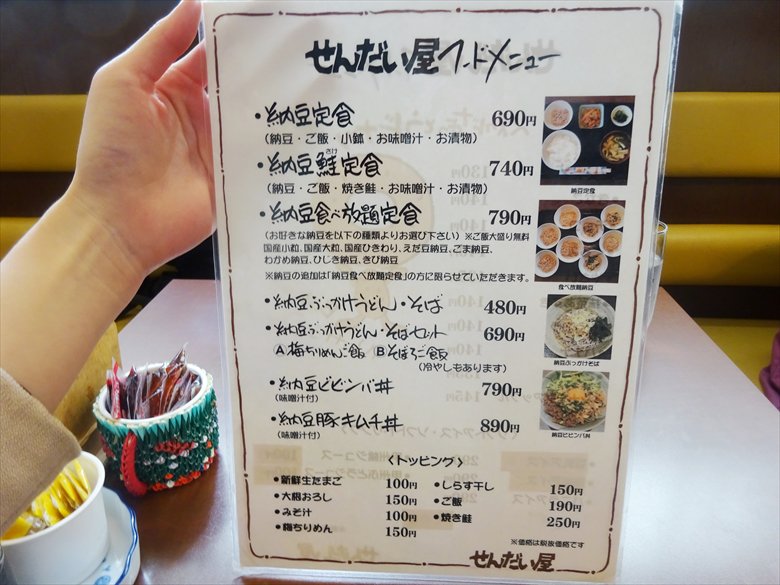 せんだい屋フードメニュー
・納豆定食 690円
(納豆・ご飯・小鉢・お味噌汁・お漬物)
さけ
・納豆鮭定食 740円
(納豆・ご飯・焼き鮭・お味噌汁・お漬物)
・納豆食べ放題定食 790円
(お好きな納豆を以下の種類よりお選び下さい) ※ご飯大盛り無料
国産小粒、国産大粒、国産ひきわり、えだ豆納豆、ごま納豆、
わかめ納豆、ひじき納豆、きび納豆
※納豆の追加は「納豆食べ放題定食」の方に限らせていただきます。
・納豆ぶっかけうどん・そば 480円
・納豆ぶっかけうどん・そばセット 690円
A 梅ちりめんご飯 B そぼろご飯
(冷やしもあります)
・納豆ビビンバ丼 790円
(味噌汁付)
・納豆豚キムチ丼 890円
(味噌汁付)
納豆定食
食べ放題納豆
納豆ぶっかけそば
納豆ビビンバ丼
〈トッピング〉
・新鮮生たまご 100円
・大根おろし 150円
・みそ汁 100円
・梅ちりめん 150円
・しらす干し 150円
・ご飯 190円
・焼き鮭 250円
※価格は税抜価格です
せんだい屋